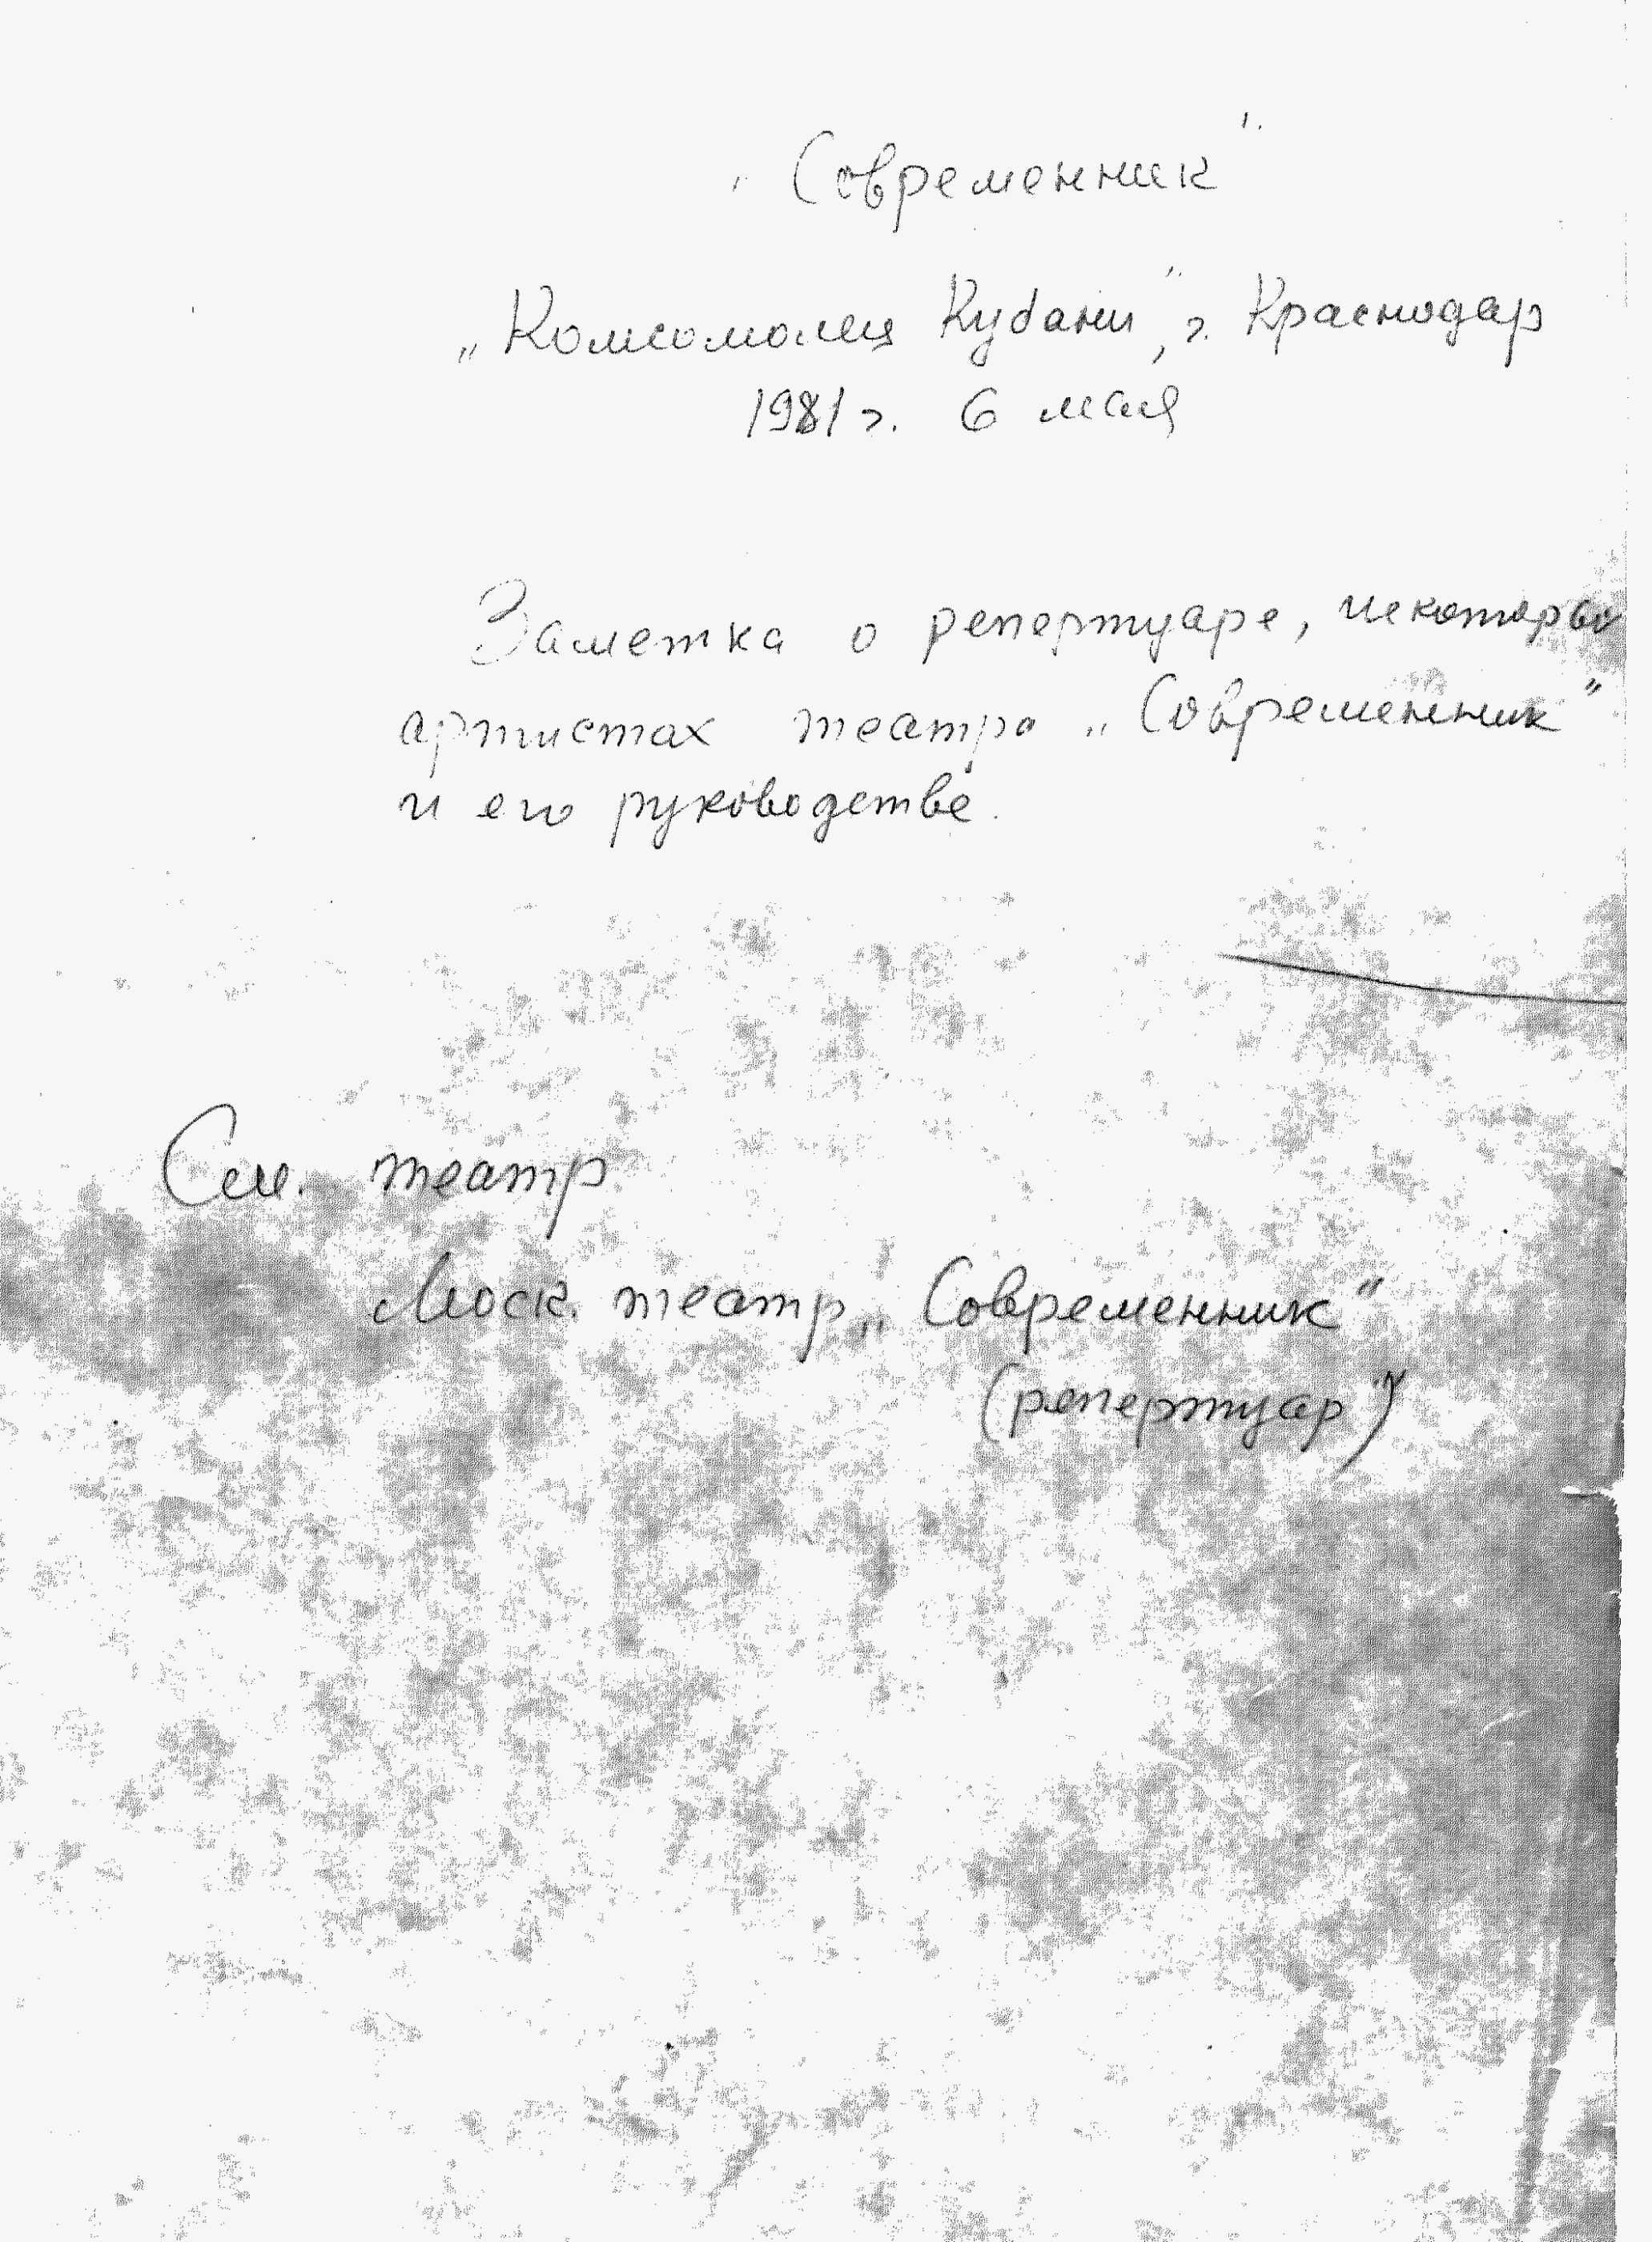 „Современник"
„Комсомолец Кубани", г. Краснодар
1981 г. 6 мая
Заметка о репертуаре, некоторы
артистах театра „Современник"
и его руководстве.
См. театр
Моск. театр „Современник"
(репертуар")